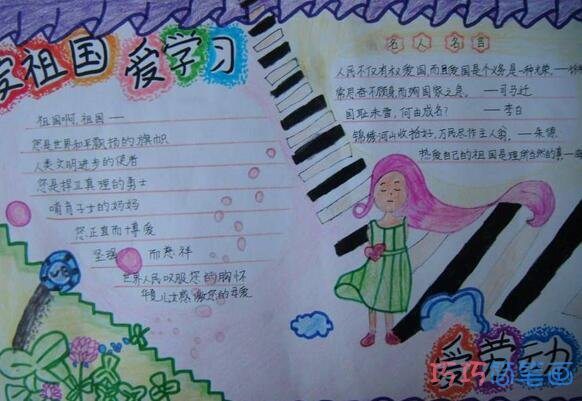 爱祖国 爱学习
祖国啊,祖国——
您是世界和平飘扬的旗帜
人类文明进步的使者
您是捍卫真理的勇士
哺育子女的妈妈
您正直而博爱
坚强 而慈祥
世界人民叹服您的胸怀
华夏儿女感谢您的母爱
名人名言
人民不仅有权爱国,而且爱国是个义务,是一种光荣。——
常思奋不顾身,而殉国家之急。——司马迁
国耻未雪,何由成名?——李白
锦绣河山收拾好,万民尽作主人翁。——朱德
热爱自己的祖国是理所当然的事—
爱劳动
巧巧简笔画